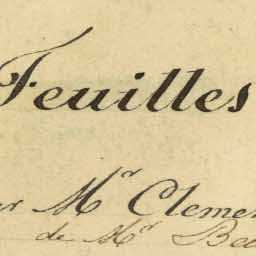 Feuilles
Mr Clemen
de Mr Bee